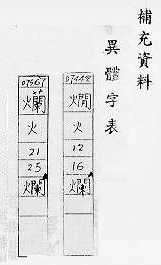 補充資料
異體字表
07448
燗
火
12
16
爛
07567
爛
火
21
25
爛